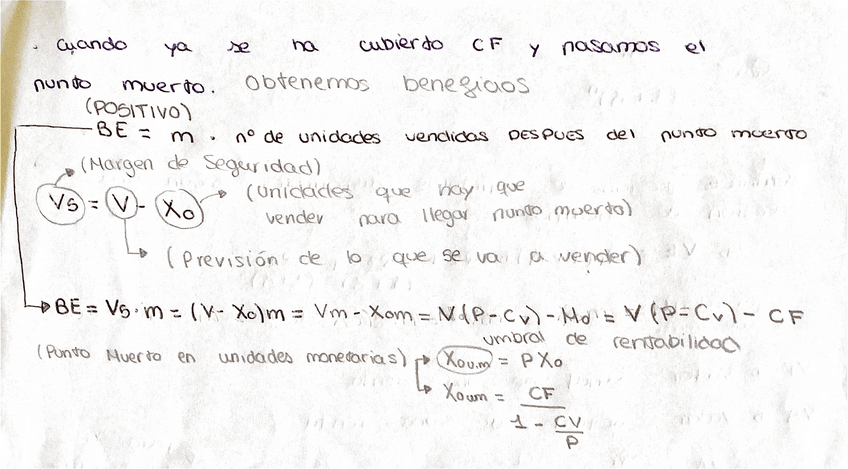 . Cuando ya se ha cubierto CF y pasamos el
punto muerto. Obtenemos beneficios
(POSITIVO)
BE = m . nº de unidades vendidas DESPUES del punto muerto
(Margen de Seguridad)
Vs = V - Xo (Unidades que hay que
vender para llegar punto muerto)
(Previsión de lo que se va a vender)
BE = Vs . m = (V - Xo)m = Vm - Xom = V(P - Cv) - Mo = V (P - Cv) - CF
umbral de rentabilidad
(Punto Muerto en unidades monetarias) Xou.m = P Xo
Xoum = CF
1 - CV
P